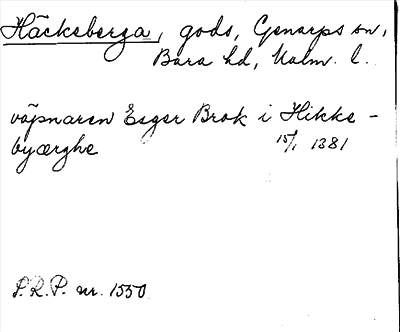 Häckeberga, gods, Genarps sn,
Bara hd, Malm. l.
väpnaren Esger Brok i Hikke-
byærghe 15/1 1381
S.R.P. nr. 1550